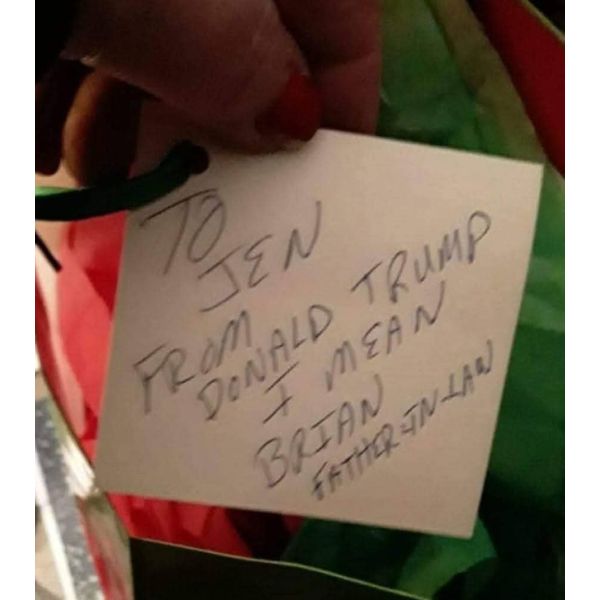 TO
JEN
FROM
DONALD TRUMP
I MEAN
BRIAN
FATHER-IN-LAW